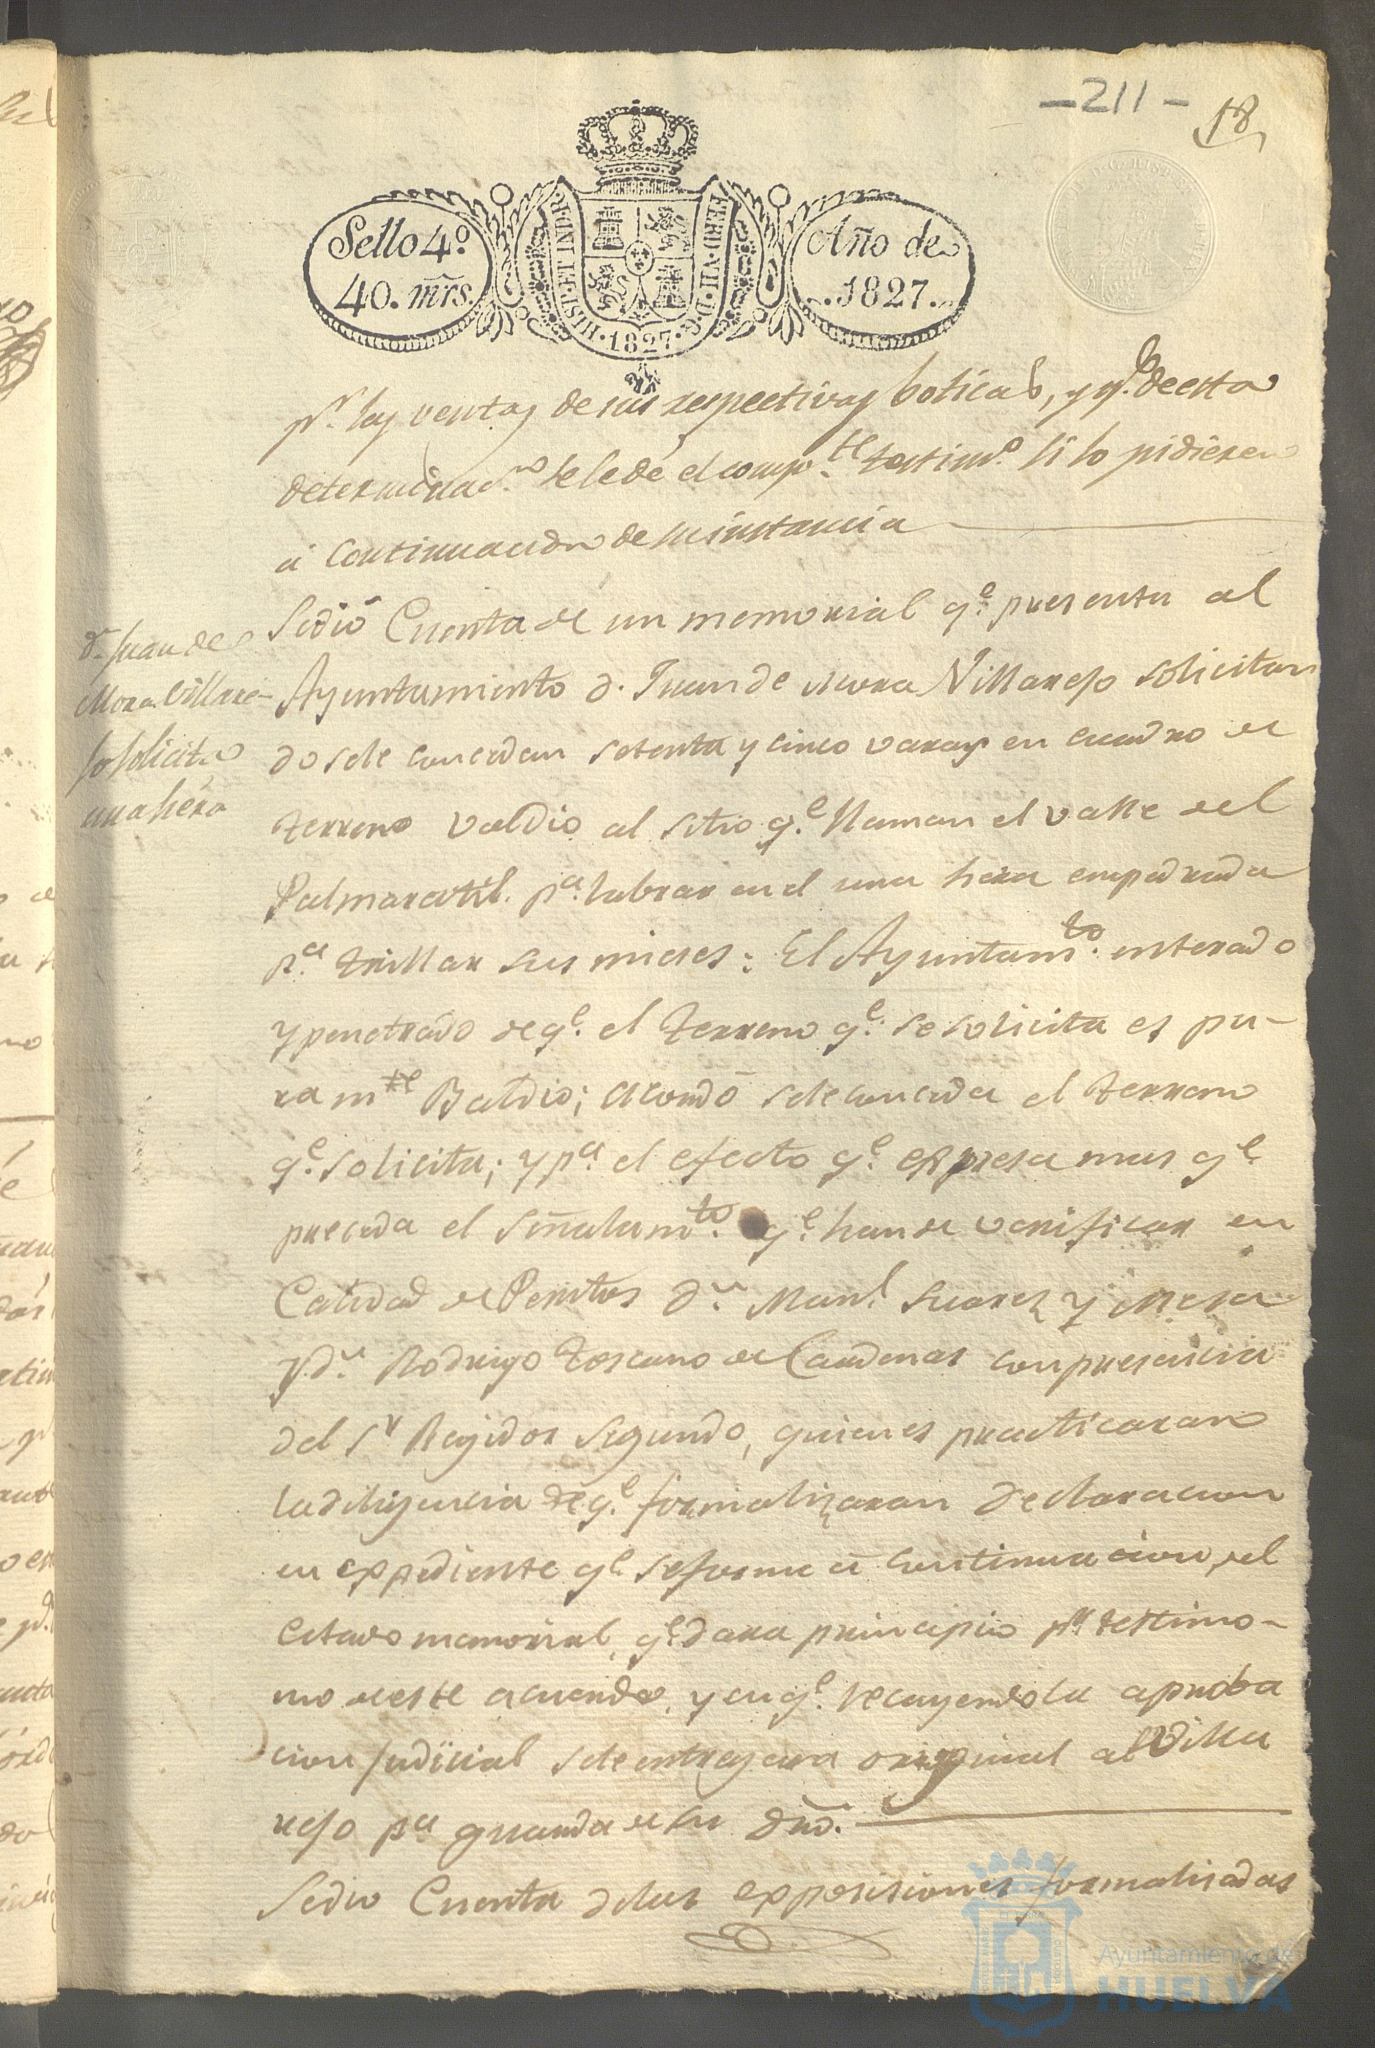 -211-
18
Sello 4º
40. mrs.
HISP. ET IND. R.
FERD. VII. D. G.
1827
Año de
1827.
pr. las ventas de sus respectivas boticas, y qe. de esta
determinacn. se le dé el compte. testimo. si lo pidieren
á continuacion de su instancia
dn. Juan de
Mora Villare-
jo solicita
una hera
Sedió Cuenta de un memorial qe. presenta al
Ayuntamiento d. Juan de Mora Villarejo solicitan
do sele concedan setenta y cinco varas en cuadro de
terreno valdio al sitio qe. llaman el valle del
pa. labrar en el una hera empedrada
pa. trillar sus mieses: El Ayuntamto. enterado
y penetrado de qe. el terreno qe. se solicita es pu-
ramte Baldio; acordó sele conceda el terreno
qe. solicita; y pa. el efecto qe. expresa mas qe.
preceda el señalamto. qe. han de verificar en
Calidad de Peritos dn. Manl. Suarez y Mesa
y dn. Rodrigo Toscano de Cardenas con presencia
del Sr Regidor Segundo, quienes practicaran
la diligencia de qe. formalizaran declaracion
en expediente qe se forme á continuacion del
citado memorial, qe. dara principio pr. testimo-
nio de este acuerdo, y en qe. recayendo la aproba
cion judicial sele entregara original al Villa
rejo pa guarda de su dro.
Sedio Cuenta delas exposiciones formalisadas
Ayuntamiento de
HUELVA